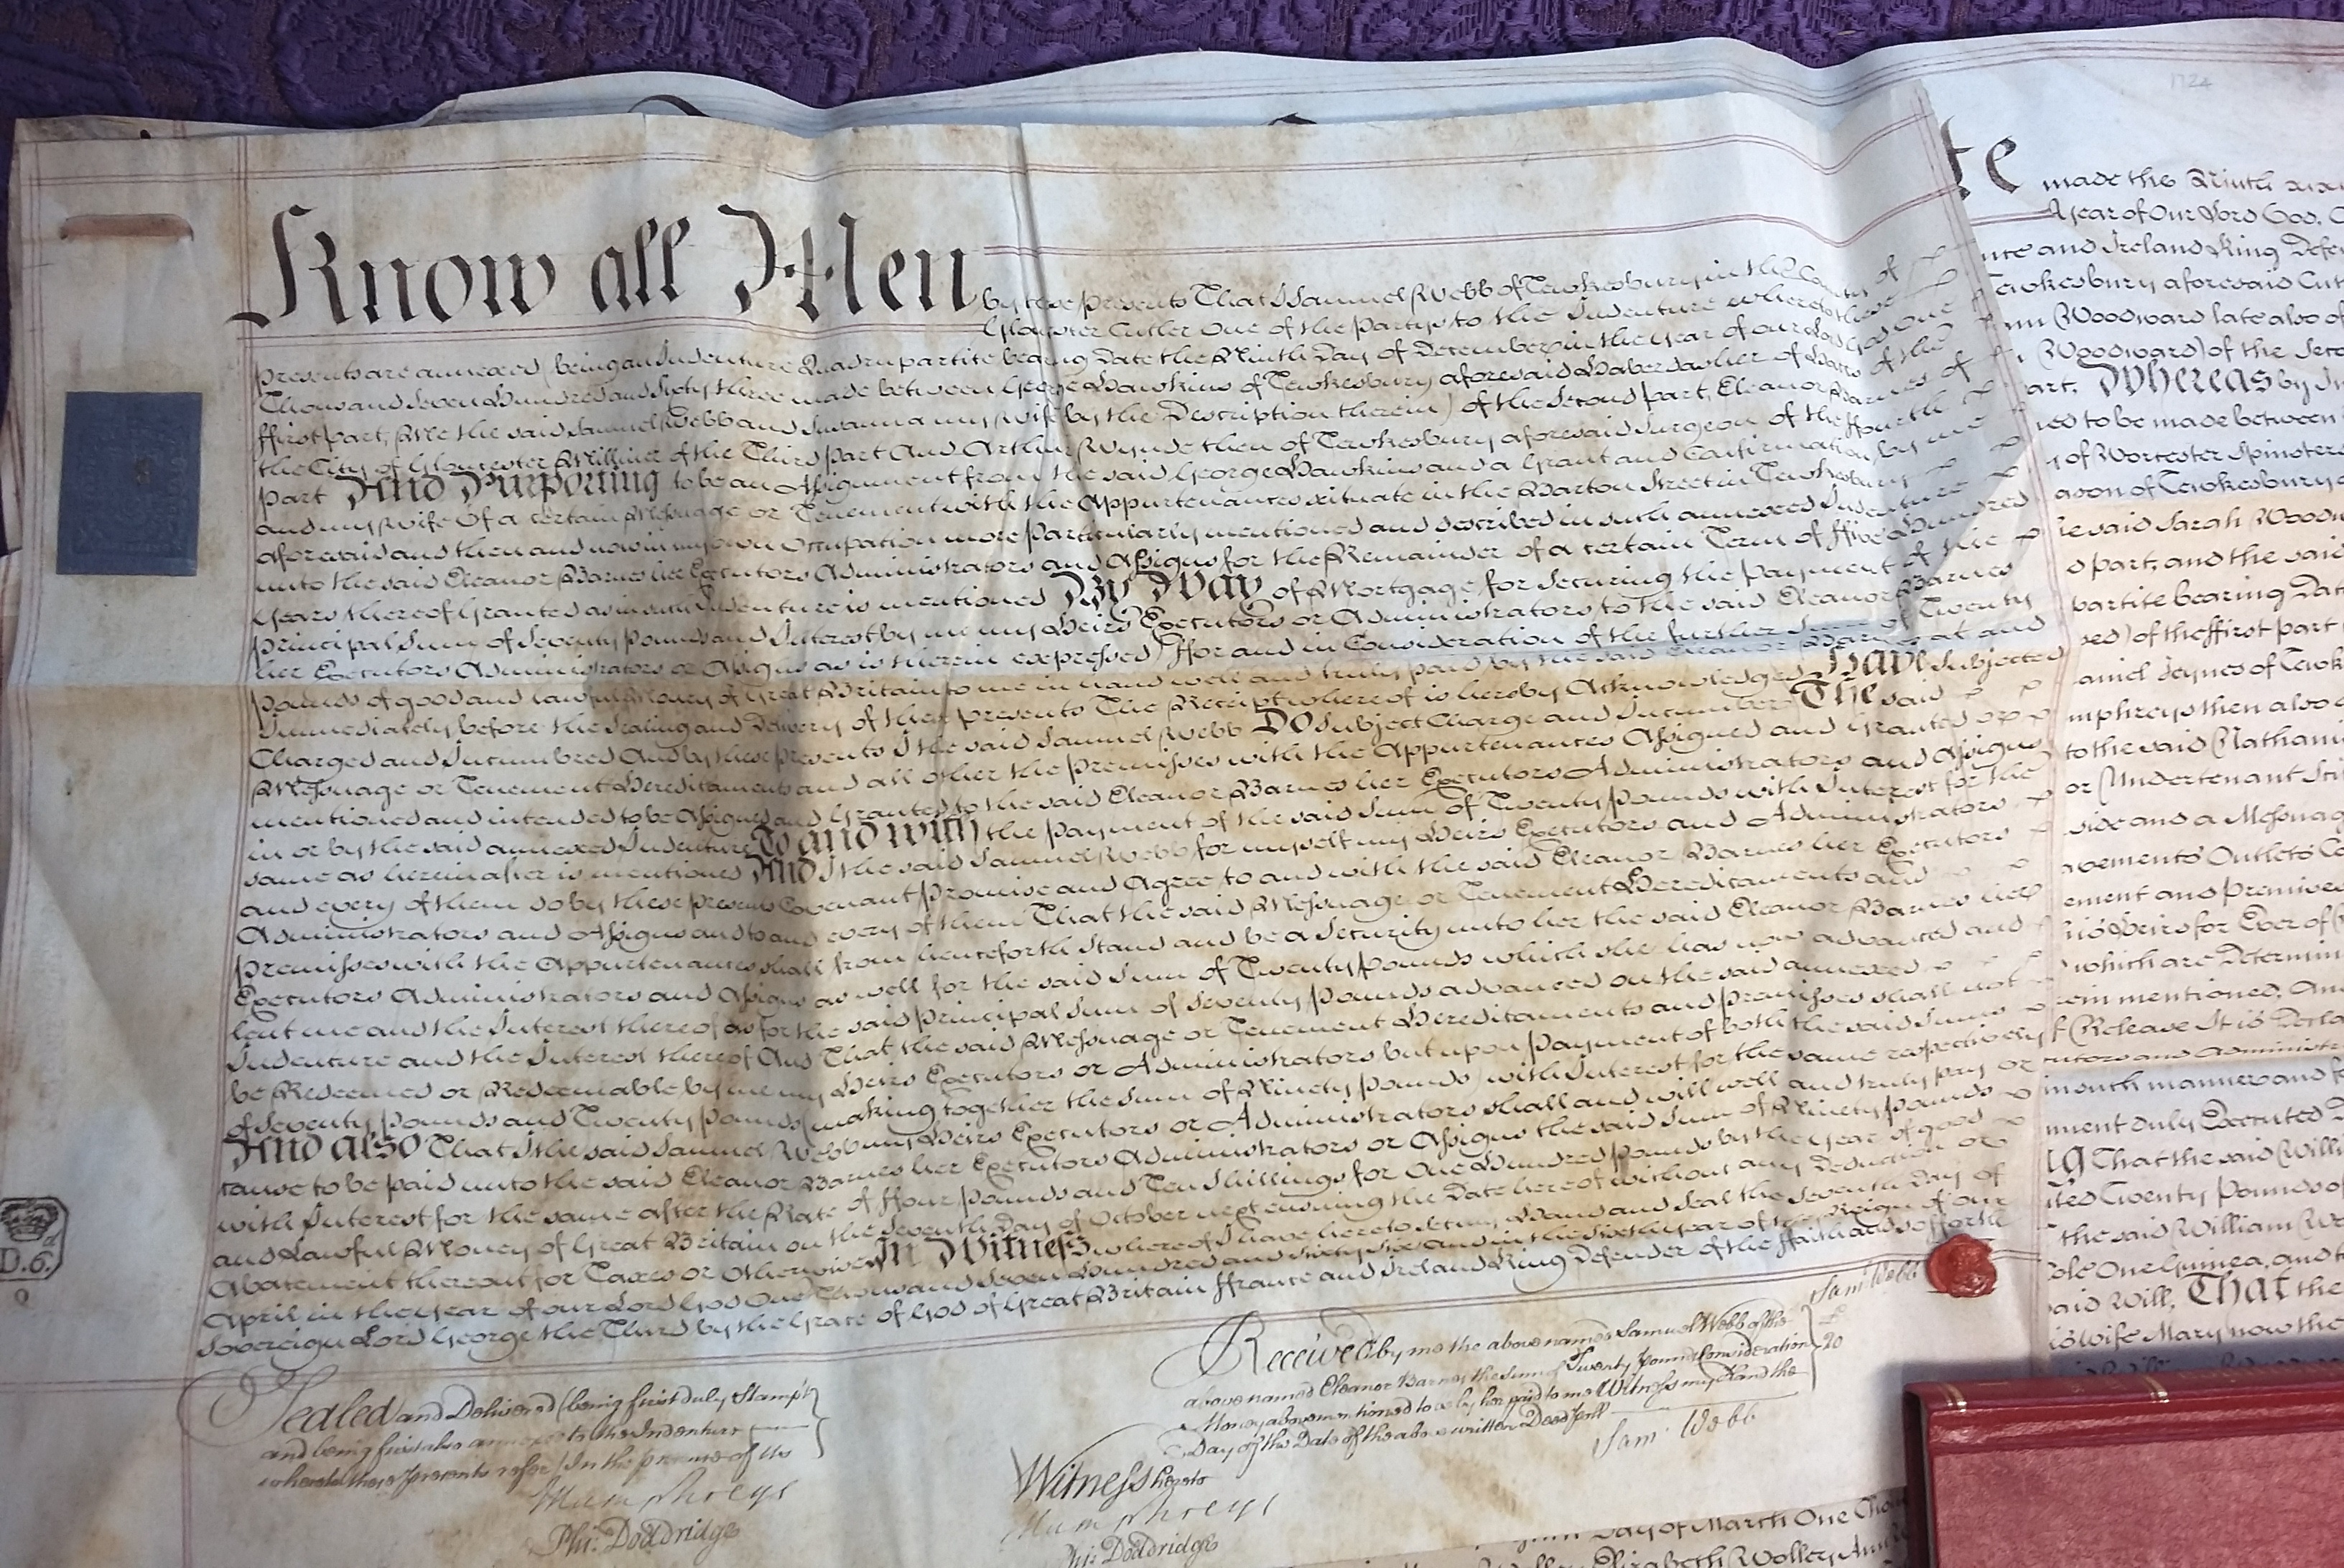 Know all Men by these presents That I Samuel Webb of Tewkesbury in the County of
Gloucester Cutler One of the Partys to the Indenture whereto these
presents are annexed (being an Indenture Quadrupartite bearing Date the Ninth Day of December in the Year of our Lord God One
Thousand Seven Hundred and Sixty three made between George Hawkins of Tewkesbury aforesaid Haberdasher of Hatts of the
ffirst part, Me the said Samuel Webb and Susanna my Wife (by the Description therein) of the Second part, Eleanor Barnes of
the City of Gloucester Milliner of the Third Part And Arthur Wynde then of Tewkesbury aforesaid Surgeon of the ffourth
part And Purporting to be an Assignment from the said George Hawkins and a Grant and Confirmation by me
and my Wife Of a certain Messuage or Tenement with the Appurtenances situate in the Barton Street in Tewkesbury
aforesaid and then and now in my own Occupation more particularly mentioned and described in such annexed Indenture
unto the said Eleanor Barnes her Executors Administrators and Assigns for the Remainder of a certain Term of ffive Hundred
Years thereof Granted as in such Indenture is mentioned By Way of Mortgage for Securing the Payment of the
principal Sum of Seventy Pounds and Interest by me my Heirs Executors or Administrators to the said Eleanor Barnes
her Executors Administrators or Assigns as is therein expressed) ffor and in Consideration of the further Sum of Twenty
Pounds of good and lawful Money of Great Britain to me in hand well and truly paid by the said Eleanor Barnes at and
Immediately before the Sealing and Delivery of these presents The Receipt whereof is hereby Acknowledged Have Subjected
Charged and Incumbred And by these presents I the said Samuel Webb Do Subject Charge and Incumber The said
Messuage or Tenement Hereditaments and all other the premisses with the Appurtenances Assigned and Granted or
mentioned and intended to be Assigned and Granted to the said Eleanor Barnes her Executors Administrators and Assigns
in or by the said annexed Indenture To and with the Payment of the said Sum of Twenty Pounds with Interest for the
same as hereinafter is mentioned And I the said Samuel Webb for myself my Heirs Executors and Administrators
and every of them do by these presents Covenant Promise and Agree to and with the said Eleanor Barnes her Executors
Administrators and Assigns and to and every of them That the said Messuage or Tenement Hereditaments and
Premisses with the Appurtenances shall from henceforth Stand and be a Security unto her the said Eleanor Barnes her
Executors Administrators and Assigns as well for the said Sum of Twenty Pounds which she has now advanced and
lent me and the Interest thereof as for the said principal Sum of Seventy Pounds advanced on the said annexed
Indenture and the Interest thereof And That the said Messuage or Tenement Hereditaments and premisses shall not
be Redeemed or Redeemable by me my Heirs Executors or Administrators but upon Payment of both the said Sums
of Seventy Pounds and Twenty Pounds (making together the Sum of Ninety Pounds) with Interest for the same respectively
And also That I the said Samuel Webb my Heirs Executors or Administrators shall and will well and truly pay or
cause to be paid unto the said Eleanor Barnes her Executors Administrators or Assigns the said Sum of Ninety Pounds
with Interest for the same after the Rate of ffour Pounds and Ten Shillings for One Hundred Pounds by the Year of good
and Lawful Money of Great Britain on the Seventh Day of October next ensuing the Date hereof without any Deduction or
Abatement thereout for Taxes or Otherwise In Witness whereof I have hereto set my Hand and Seal the Seventh Day of
April in the Year of our Lord God One Thousand Seven Hundred and Sixty Six and in the Sixth Year of the Reign of our
Sovereign Lord George the Third by the Grace of God of Great Britain ffrance and Ireland King Defender of the ffaith and so forth
Sam Webb
Received by me the above named Samuel Webb of the
above named Eleanor Barnes the Sum of Twenty Pounds Consideration
Money above mentioned to be by her paid to me Witness my Hand the
Day of the Date of the above written Deed Poll
£
20
Sam Webb
Witness hereto
Humphreys
Phi: Doddridge
Sealed and Delivered (being first duly Stampt
and being first also annexed to the Indenture
whereto these Presents refer) In the presence of us
Humphreys
Phi: Doddridge
D.6.
Q
1724
made the Ninth
Year of Our Lord God.
and Ireland King
Tewkesbury aforesaid
Woodward late also of
Woodward) of the
part. Whereas by
to be made between
of Worcester Spinster
of Tewkesbury
said Sarah
part, and the said
bearing Date
of the ffirst part
Jeynes of
then also
to the said
or Undertenant
side and a Messuage
Outlets
and Premisses
Heirs for Ever of
which are
mentioned. And
Release It is
and
month manner and
duly Executed
That the said
Twenty Pounds of
the said William
One Guinea, and
said Will. That the
Wife Mary now the
Day of March One
Elizabeth Wolley